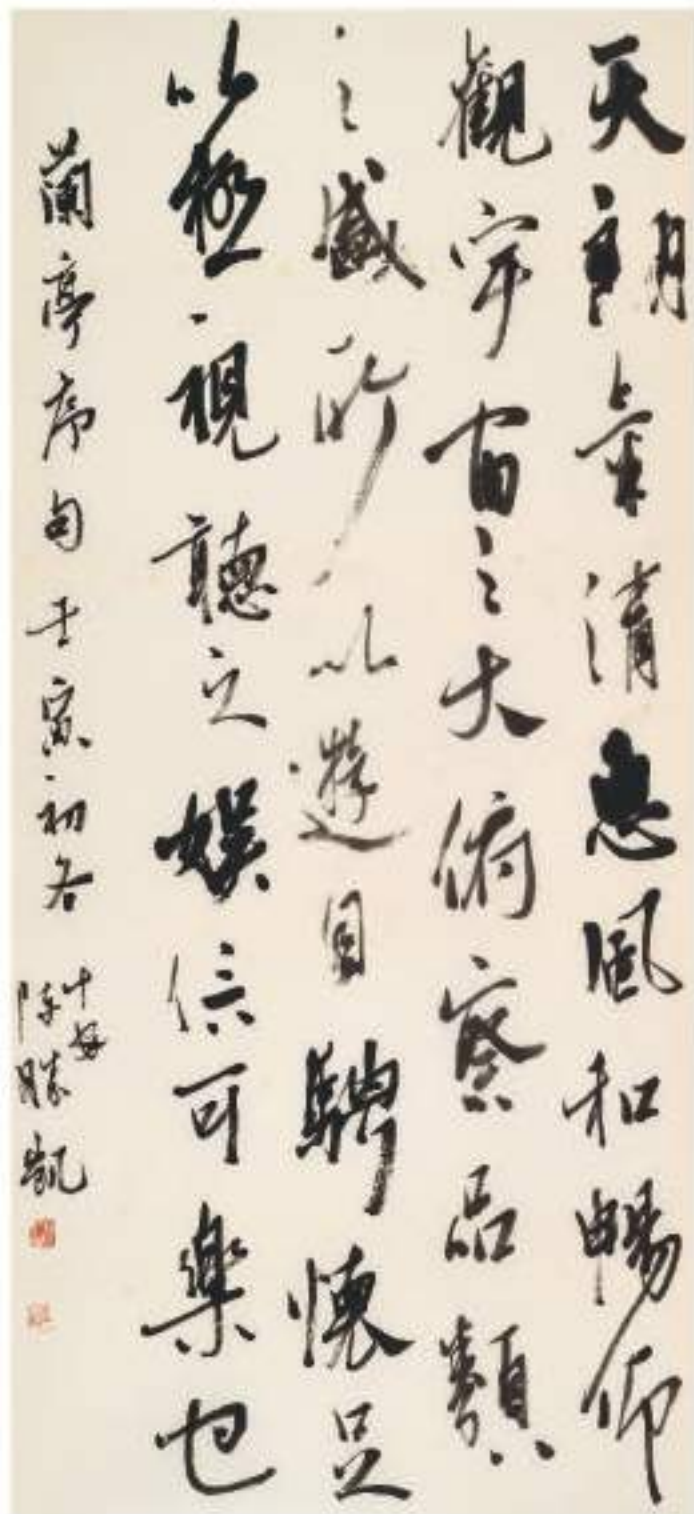 天朗氣清惠風和暢仰
觀宇宙之大俯察品類
之盛所以遊目騁懷足
以極視聽之娱信可樂也
蘭亭序句壬寅初冬
陳勝凱